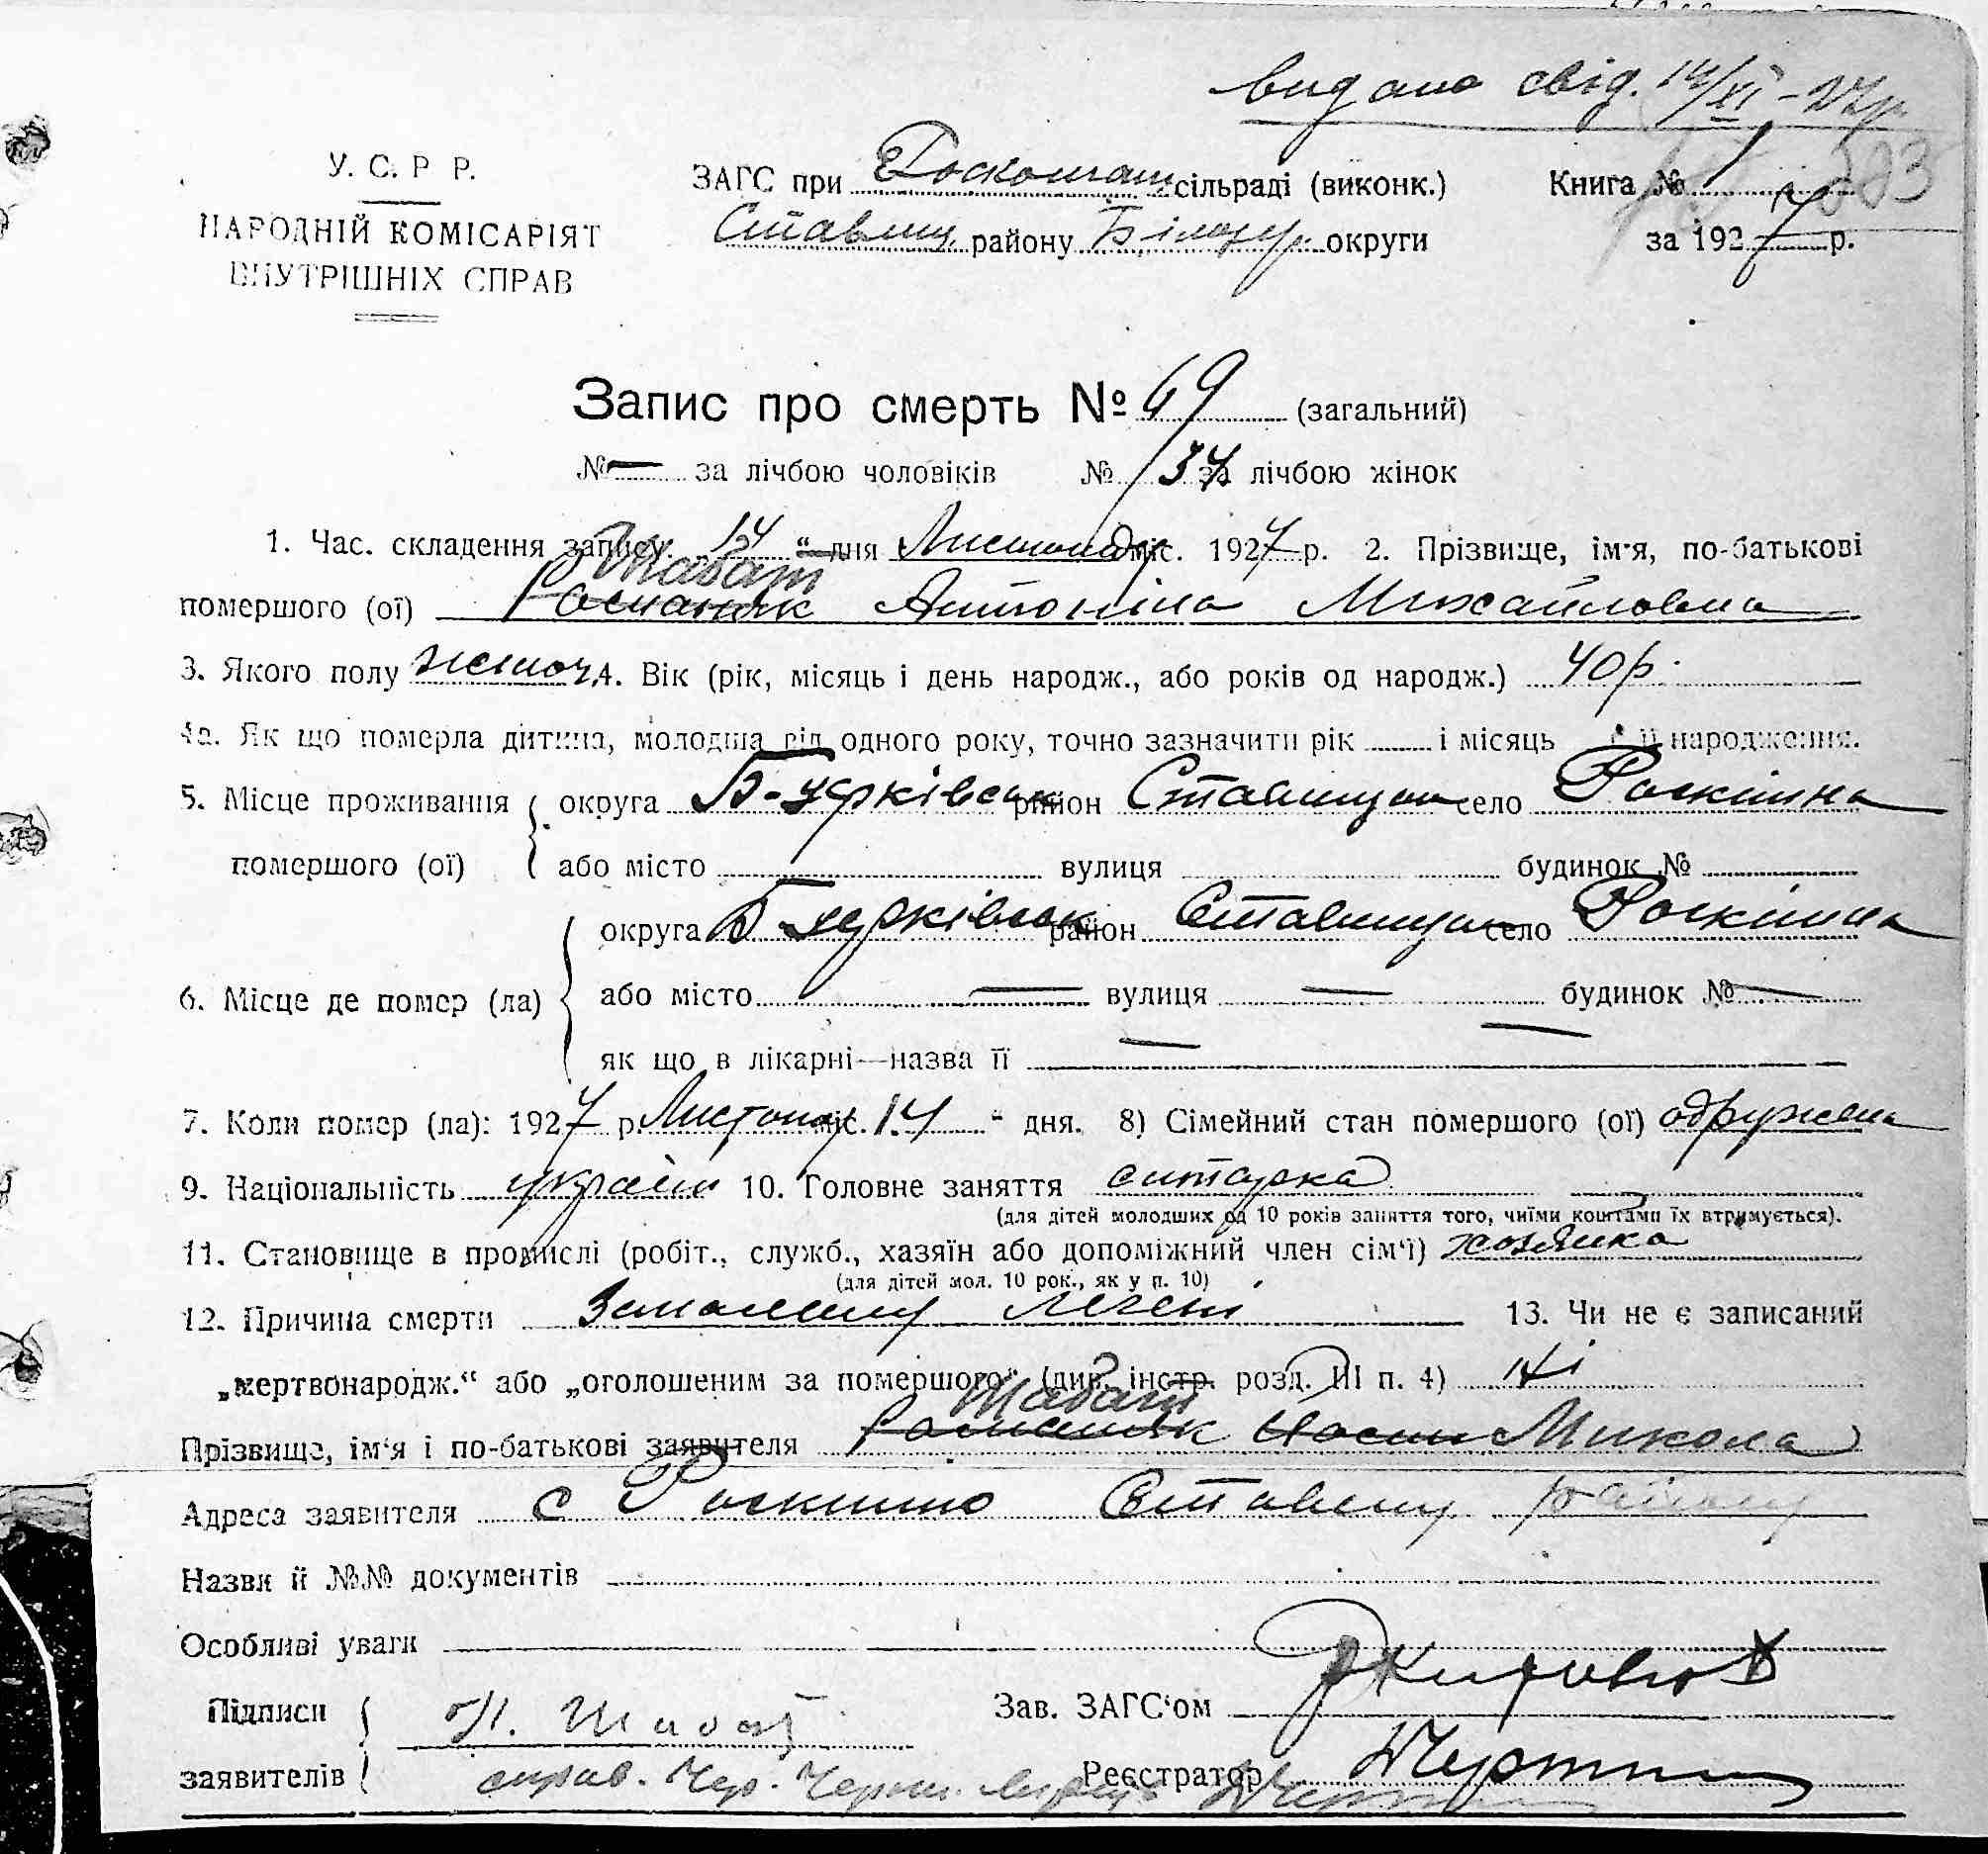 видано свід. 14/XI - 27р.
У. С. Р Р.
НАРОДНІЙ КОМІСАРІЯТ
ВНУТРІШНІХ СПРАВ
ЗАГС при Роскошан. сільраді (виконк.)
Ставищ району Білоцер. округи
Книга № 1
за 1927 р.
Запис про смерть № 69 (загальний)
№ — за лічбою чоловіків № 34 за лічбою жінок
1. Час. складення запису 14 “ дня Листопад міс. 1927 р. 2. Прізвище, ім'я, по-батькові
Шабат
помершого (ої) Романюк Антоніна Михайловна
3. Якого полу жіноч. 4. Вік (рік, місяць і день народж., або років од народж.) 40 р.
4а. Як що померла дитина, молодша від одного року, точно зазначити рік і місяць її народження.
5. Місце проживання округа Б-церківськ район Ставищан село Роскішна
помершого (ої) або місто вулиця будинок №
округа Б-церківськ район Ставищан село Роскішна
6. Місце де помер (ла) або місто — вулиця — будинок № —
як що в лікарні—назва її —
7. Коли помер (ла): 1927 р. Листопад міс. 14 “ дня. 8) Сімейний стан помершого (ої) одружена
9. Національність україн 10. Головне заняття
(для дітей молодших од 10 років заняття того, чиїми коштами їх втримується).
11. Становище в промислі (робіт., служб., хазяїн або допоміжний член сім'ї) хозяйка
(для дітей мол. 10 рок., як у п. 10)
12. Причина смерти легені 13. Чи не є записаний
„мертвонародж.“ або „оголошеним за помершого“ (див. інстр. розд. III п. 4) ні
Шабат
Прізвище, ім'я і по-батькові заявителя Романюк Микола
Адреса заявителя с Роскішно Ставищ району
Назви й №№ документів
Особливі уваги
Підписи
заявителів
Н. Шабат
Зав. ЗАГС'ом
Реєстратор